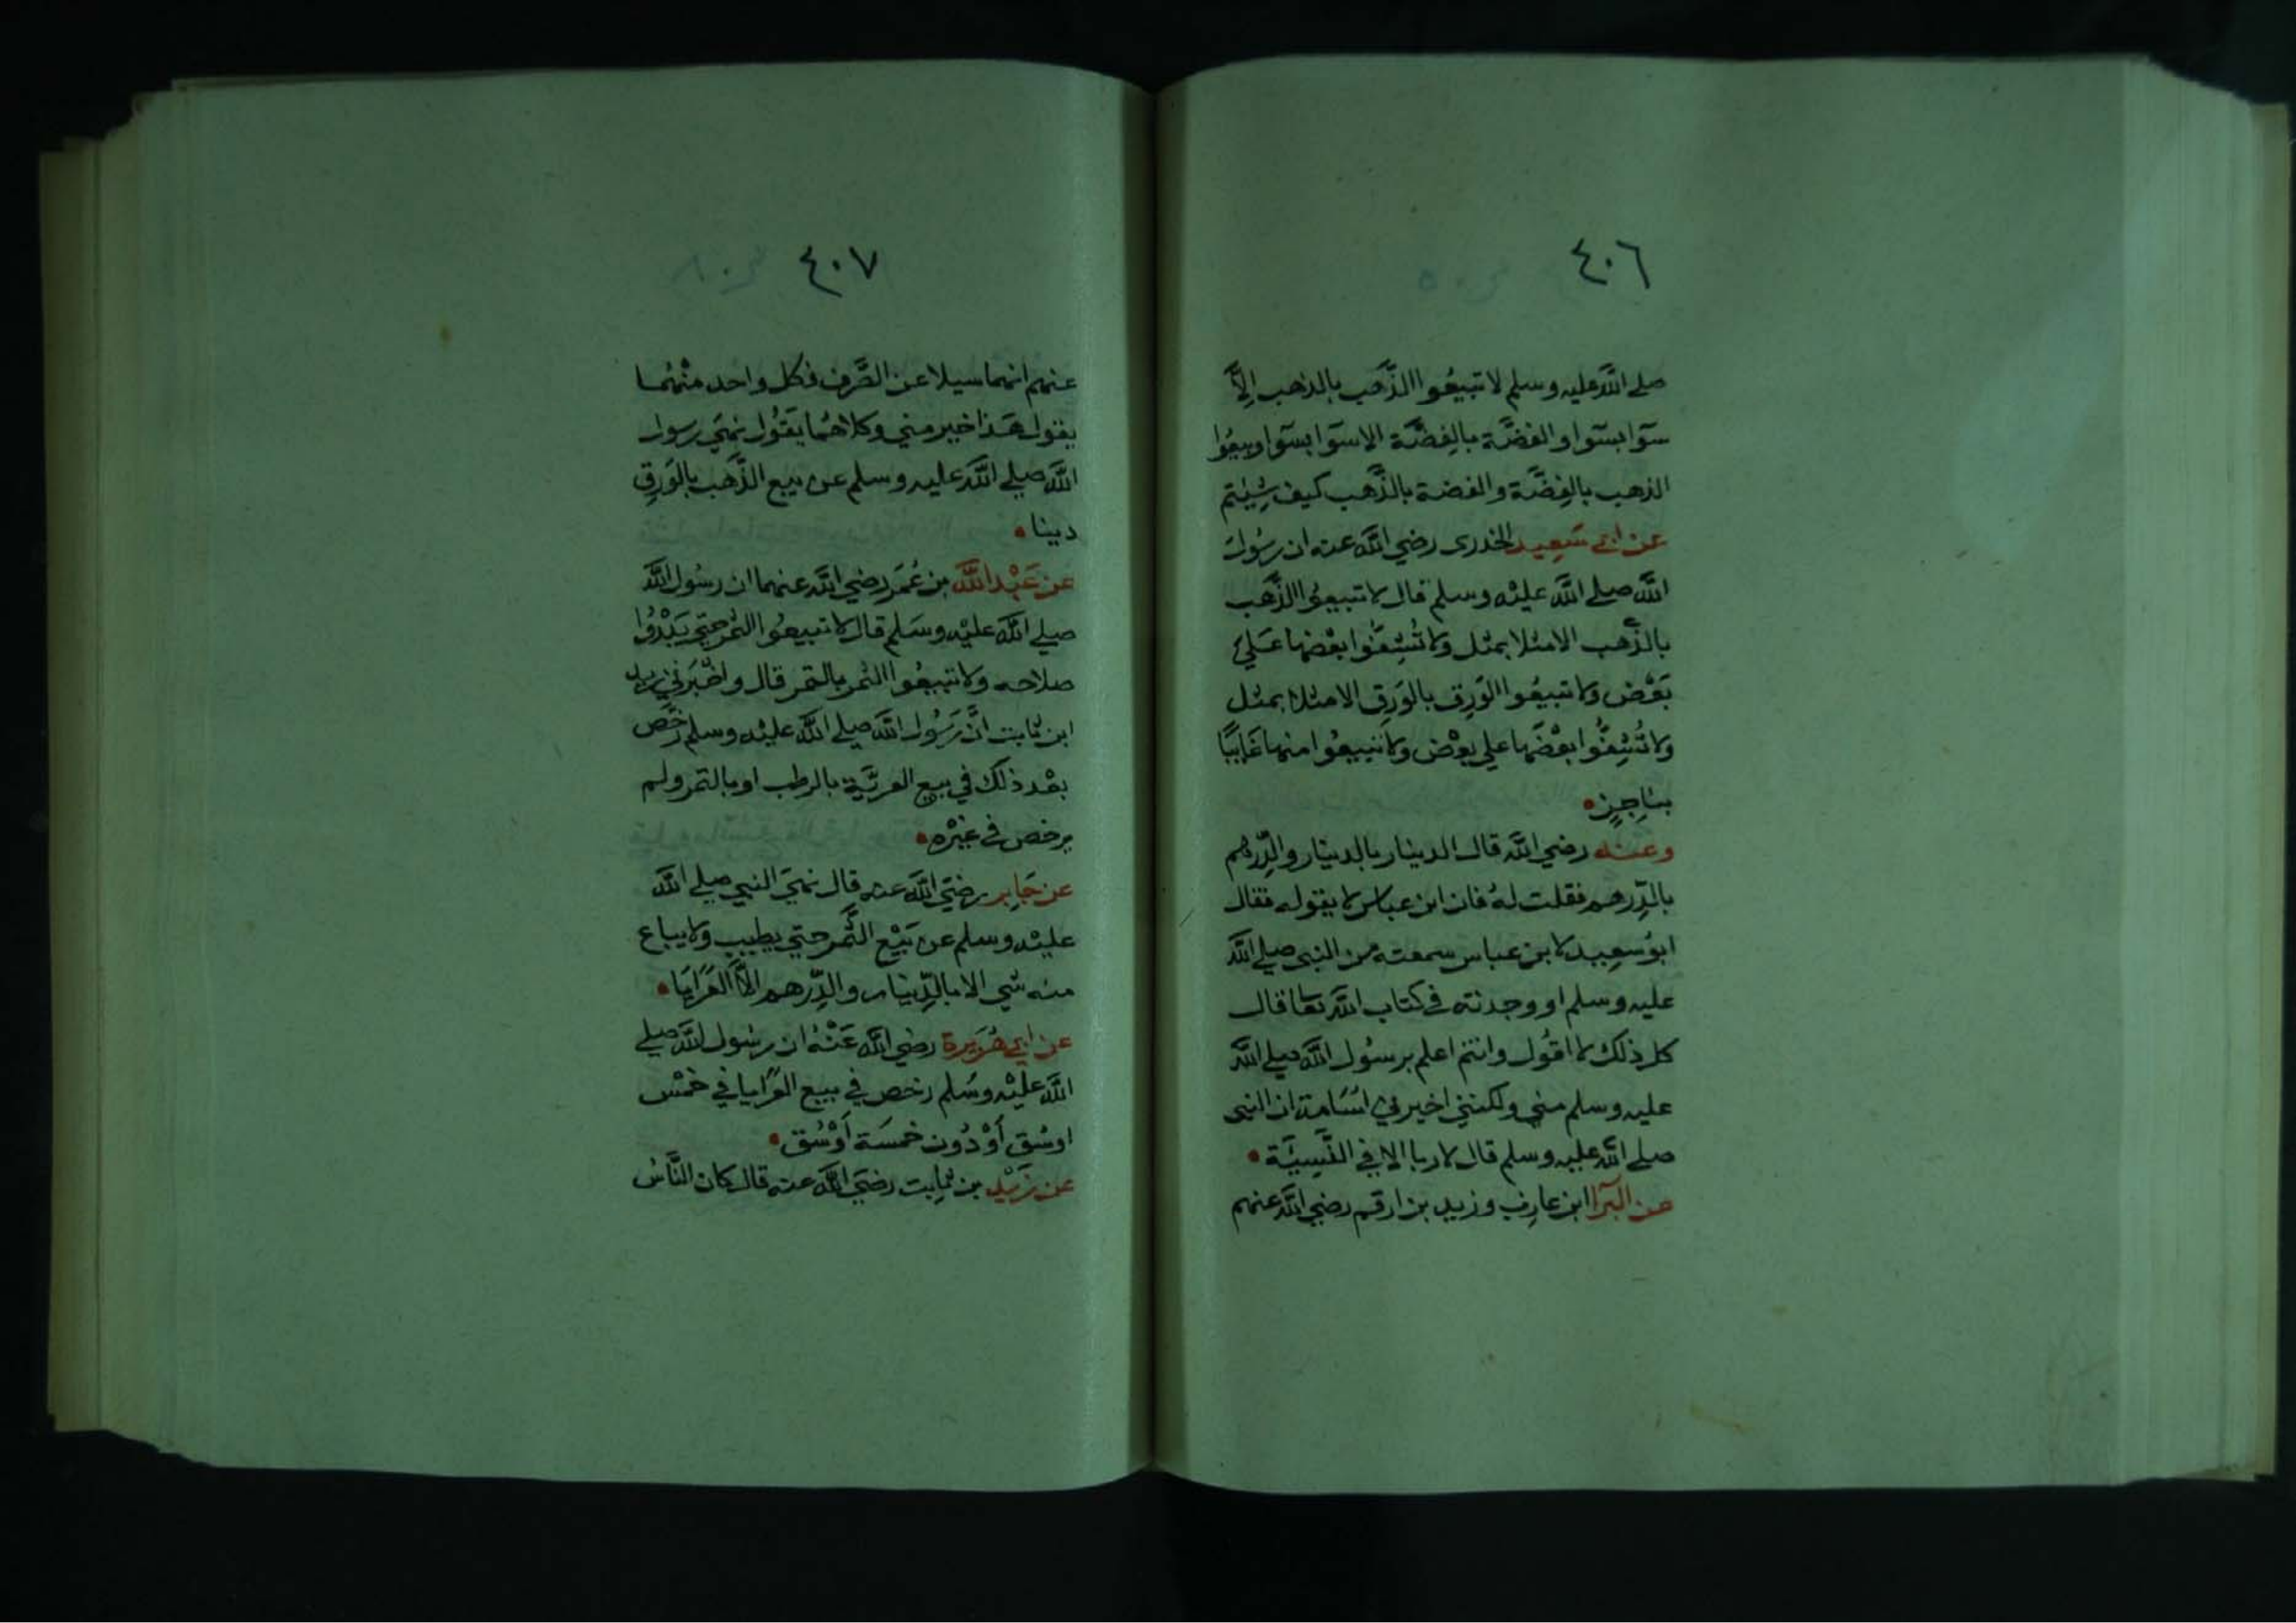 ٤٠٦
صلي الله عليه وسلم لا تبيعُوا الذَّهب بالذهب الِاَّ
سَوآ بسَوآ والفضَّة بالفِضَّة الا سَوآ بسَوآ وبيعُوا
الذهب بالفِضَّة والفضة بالذَّهب كيف شِيتم
عن ابي سَعِيد الخدرى رضي الله عنه ان رسُول
الله صلي الله عليْه وسلم قال لا تبيعُوا الذَّهب
بالذَّهب الا مثلا بمثل ولا تُشِفُّوا بعْضها عَلي
بَعْض ولا تبيعُوا الوَرِق بالوَرِق الا مثلا بمثل
ولا تُشِفُّوا بعْضَها علي بعْض ولا تبيعُوا منها غَايبًا
بنَاجِزٍ
وعنه رضي الله قال الدينار بالدينار والدِّرهم
بالدِّرهم فقلت لهُ فان ابن عباس لا يقوله فقال
ابوُ سعِيد لابن عباس سمعته من النبي صلي الله
عليه وسلم او وجدته في كتاب الله تعا قال
كل ذلك لا اقُول وانتم اعلم برسُول الله صلي الله
عليه وسلم مني ولكنني اخبرني اسَامة ان النبي
صلي الله عليه وسلم قال لا ربا الا في النَّسِيَّة
عن البَرآ ابن عازب وزيد بن ارقم رضي الله عنهم
٤٠٧
عنهم انهما سيلا عن الصَّرف فكل واحد منْهُما
يقول هَذا خير مني وكلاهُما يقَوُل نهَي رسول
الله صلي الله عليه وسلم عن بيع الذَّهب بالوَرِق
دينا
عن عَبْد الله بن عُمَر رضي الله عنهما ان رسُول الله
صلي الله عليْه وسَلم قال لا تبيعُوا الثمر حتي يَبْدُوا
صلاحه ولا تبيعُوا الثمر بالتمر قال واخْبَرني زيد
ابن ثابت انَّ رَسُول الله صلي الله عليْه وسلم رخَّص
بعْد ذلك في بيع العرِيَّة بالرطب او بالتمر ولم
يرخص في غيْره
عن جَابِر رضيَ الله عنه قال نهَي النبي صلي الله
عليْه وسلم عن بَيْع الثَّمر حتي يطيب ولا يباع
منه شي الا بالدِّينار والدِّرهم الاَّ العَرَايَا
عن ابي هُرَيرة رضي الله عَنْهُ ان رسُول الله صلي
الله عليْه وسَلم رخص في بيع العَرايا في خمْس
اوسُق أَوْ دُون خمسَة أَوْسُق
عن زَيْدِ بن ثابِت رضيَ الله عنه قال كان النَّاسُ